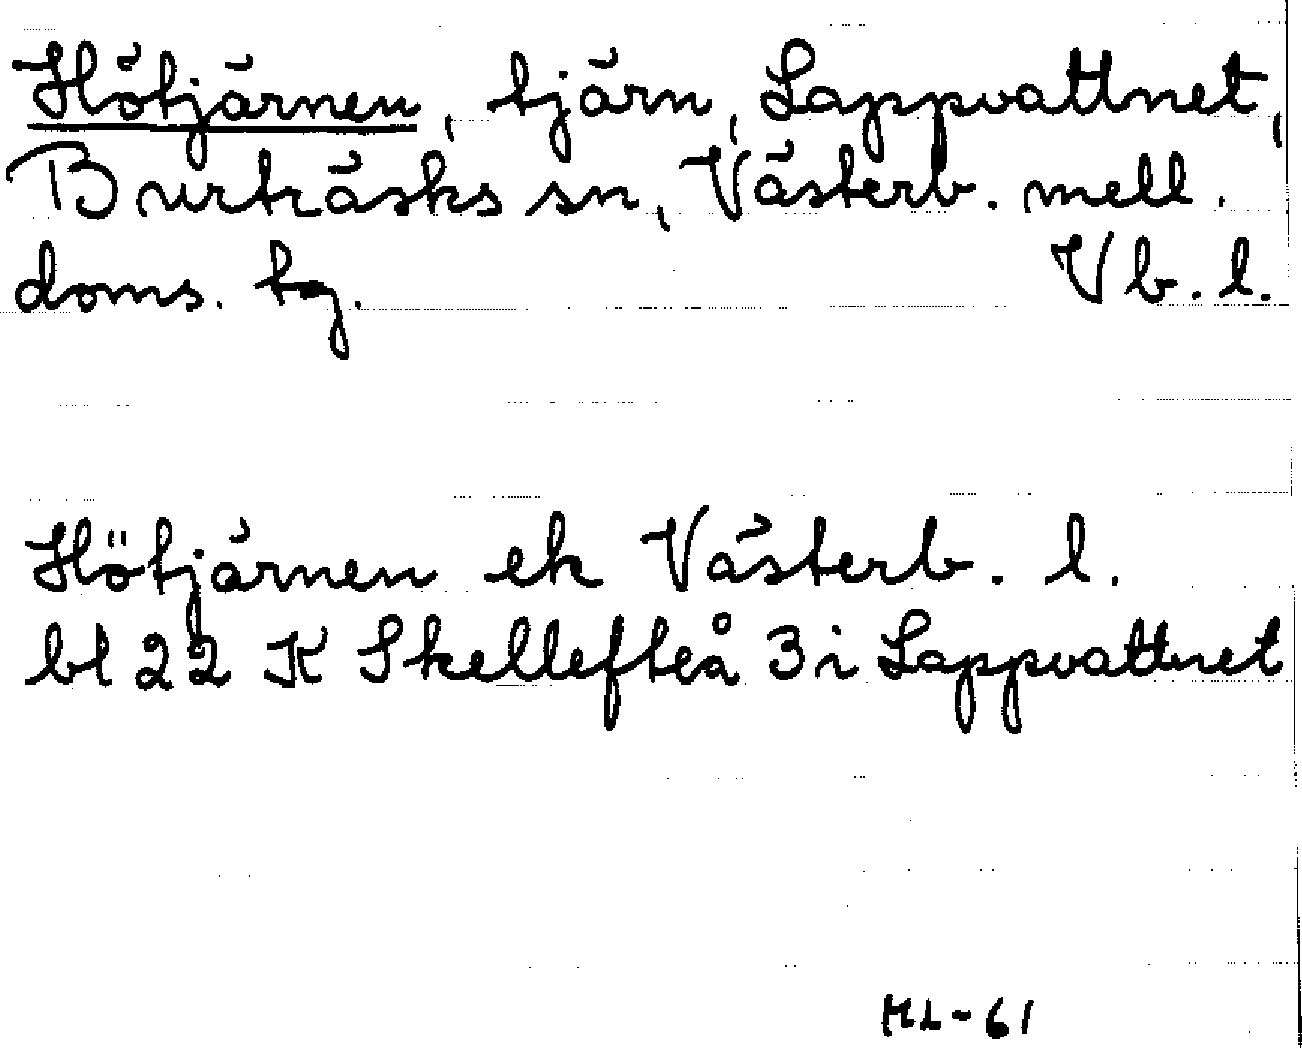 Hötjärnen, tjärn, Lappvattnet,
Burträsks sn, Västerb. mell.
doms. tg. Vb. l.
Hötjärnen ek Västerb. l.
bl 22 K Skellefteå 3 i Lappvattnet
ML-61